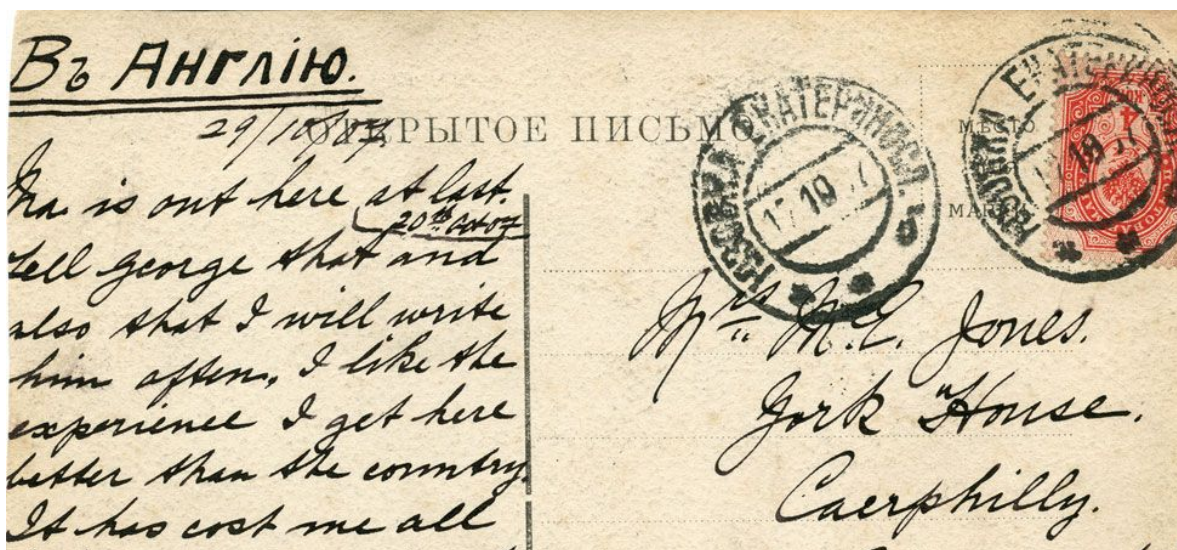 Въ Англію.
29/10/07
ОТКРЫТОЕ ПИСЬМО
МѢСТО
is out here at last.
20th Oct 07
tell George that and
also that I will write
him often, I like the
experience I get here
better than the country.
It has cost me all
ЮЗОВКА ЕКАТЕРИНОСЛ.
17 10 7
ЮЗОВКА ЕКАТЕРИНОСЛ
10 7
4
Mrs M.E. Jones.
York House.
Caerphilly.